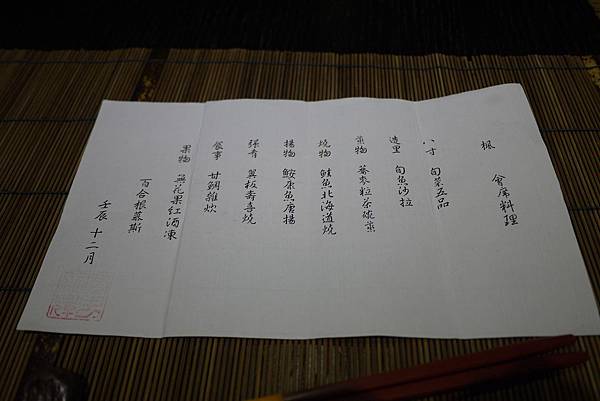 楓 會席料理
八寸 旬菜五品
造里 旬魚沙拉
蒸物 蕎麥粒茶碗蒸
燒物 鮭魚北海道燒
揚物 鮟康魚唐揚
強肴 翼板壽喜燒
食事 甘鯛雜炊
果物 無花果紅酒凍
百合根慕斯
壬辰 十二月